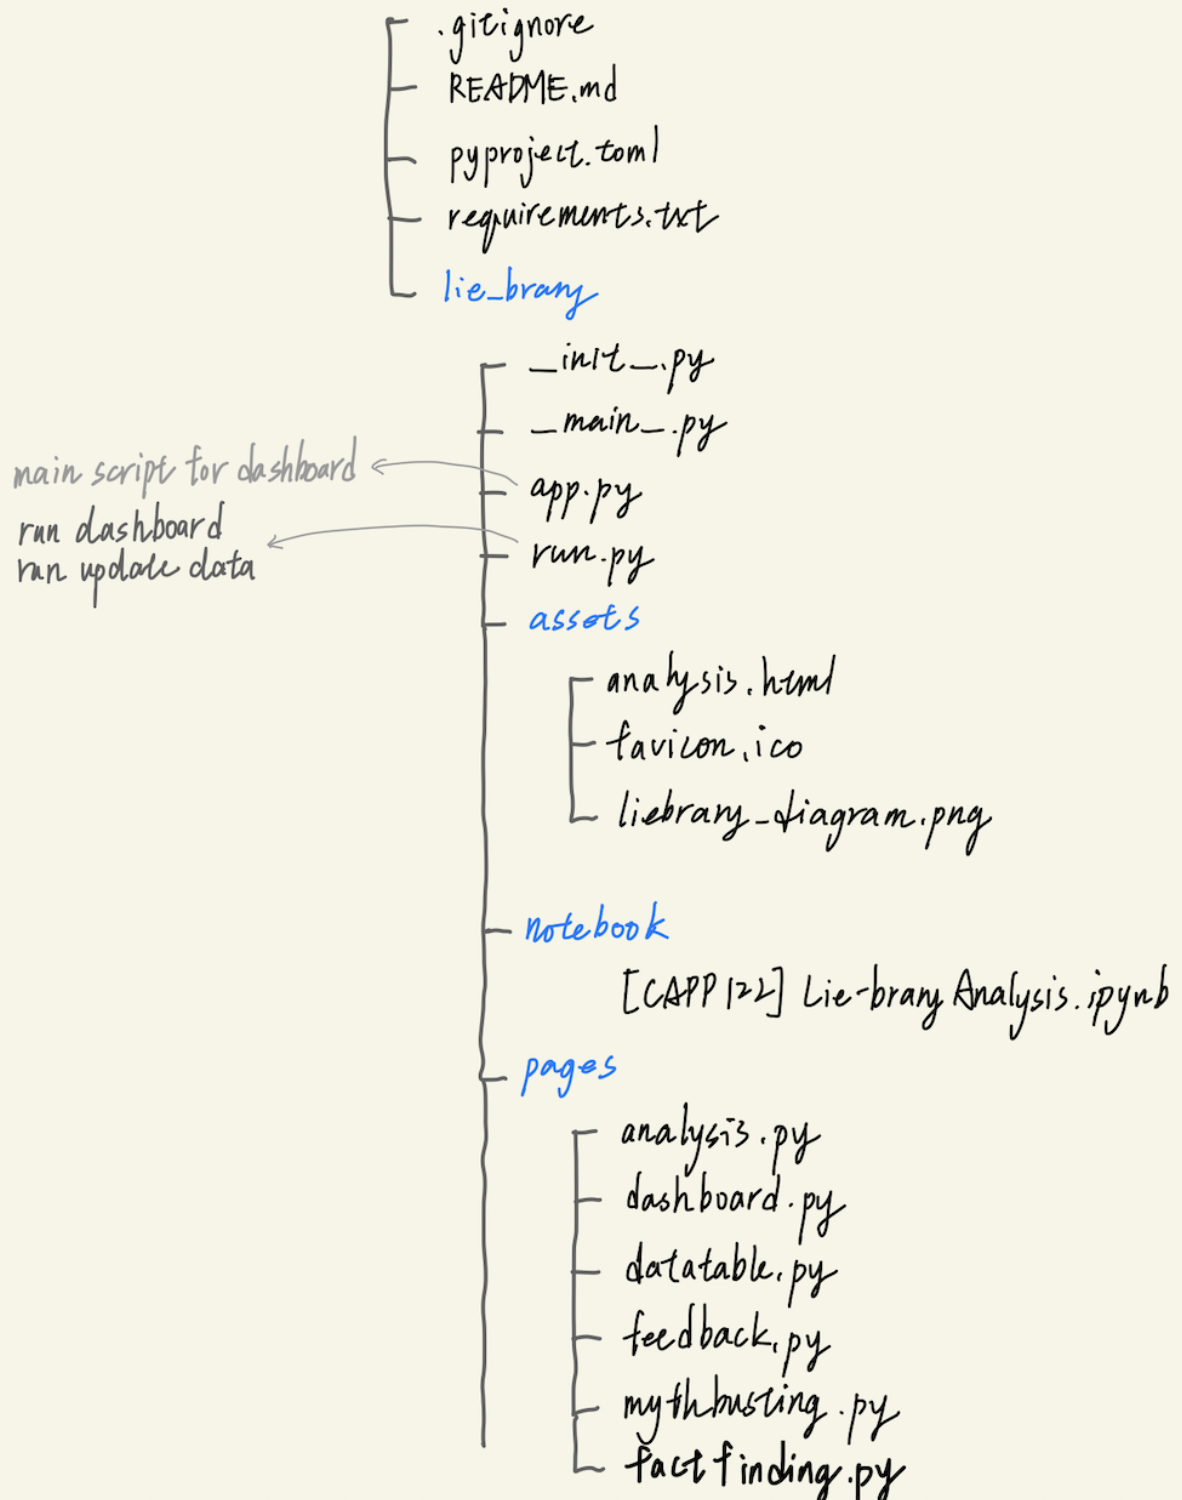 .gitignore
README.md
pyproject.toml
requirements.txt
lie_brary
_init_.py
_main_.py
main script for dashboard
app.py
run dashboard
run update data
run.py
assets
analysis.html
favicon.ico
liebrary_diagram.png
notebook
[CAPP122] Lie-brary Analysis.ipynb
pages
analysis.py
dashboard.py
datatable.py
feedback.py
mythbusting.py
factfinding.py